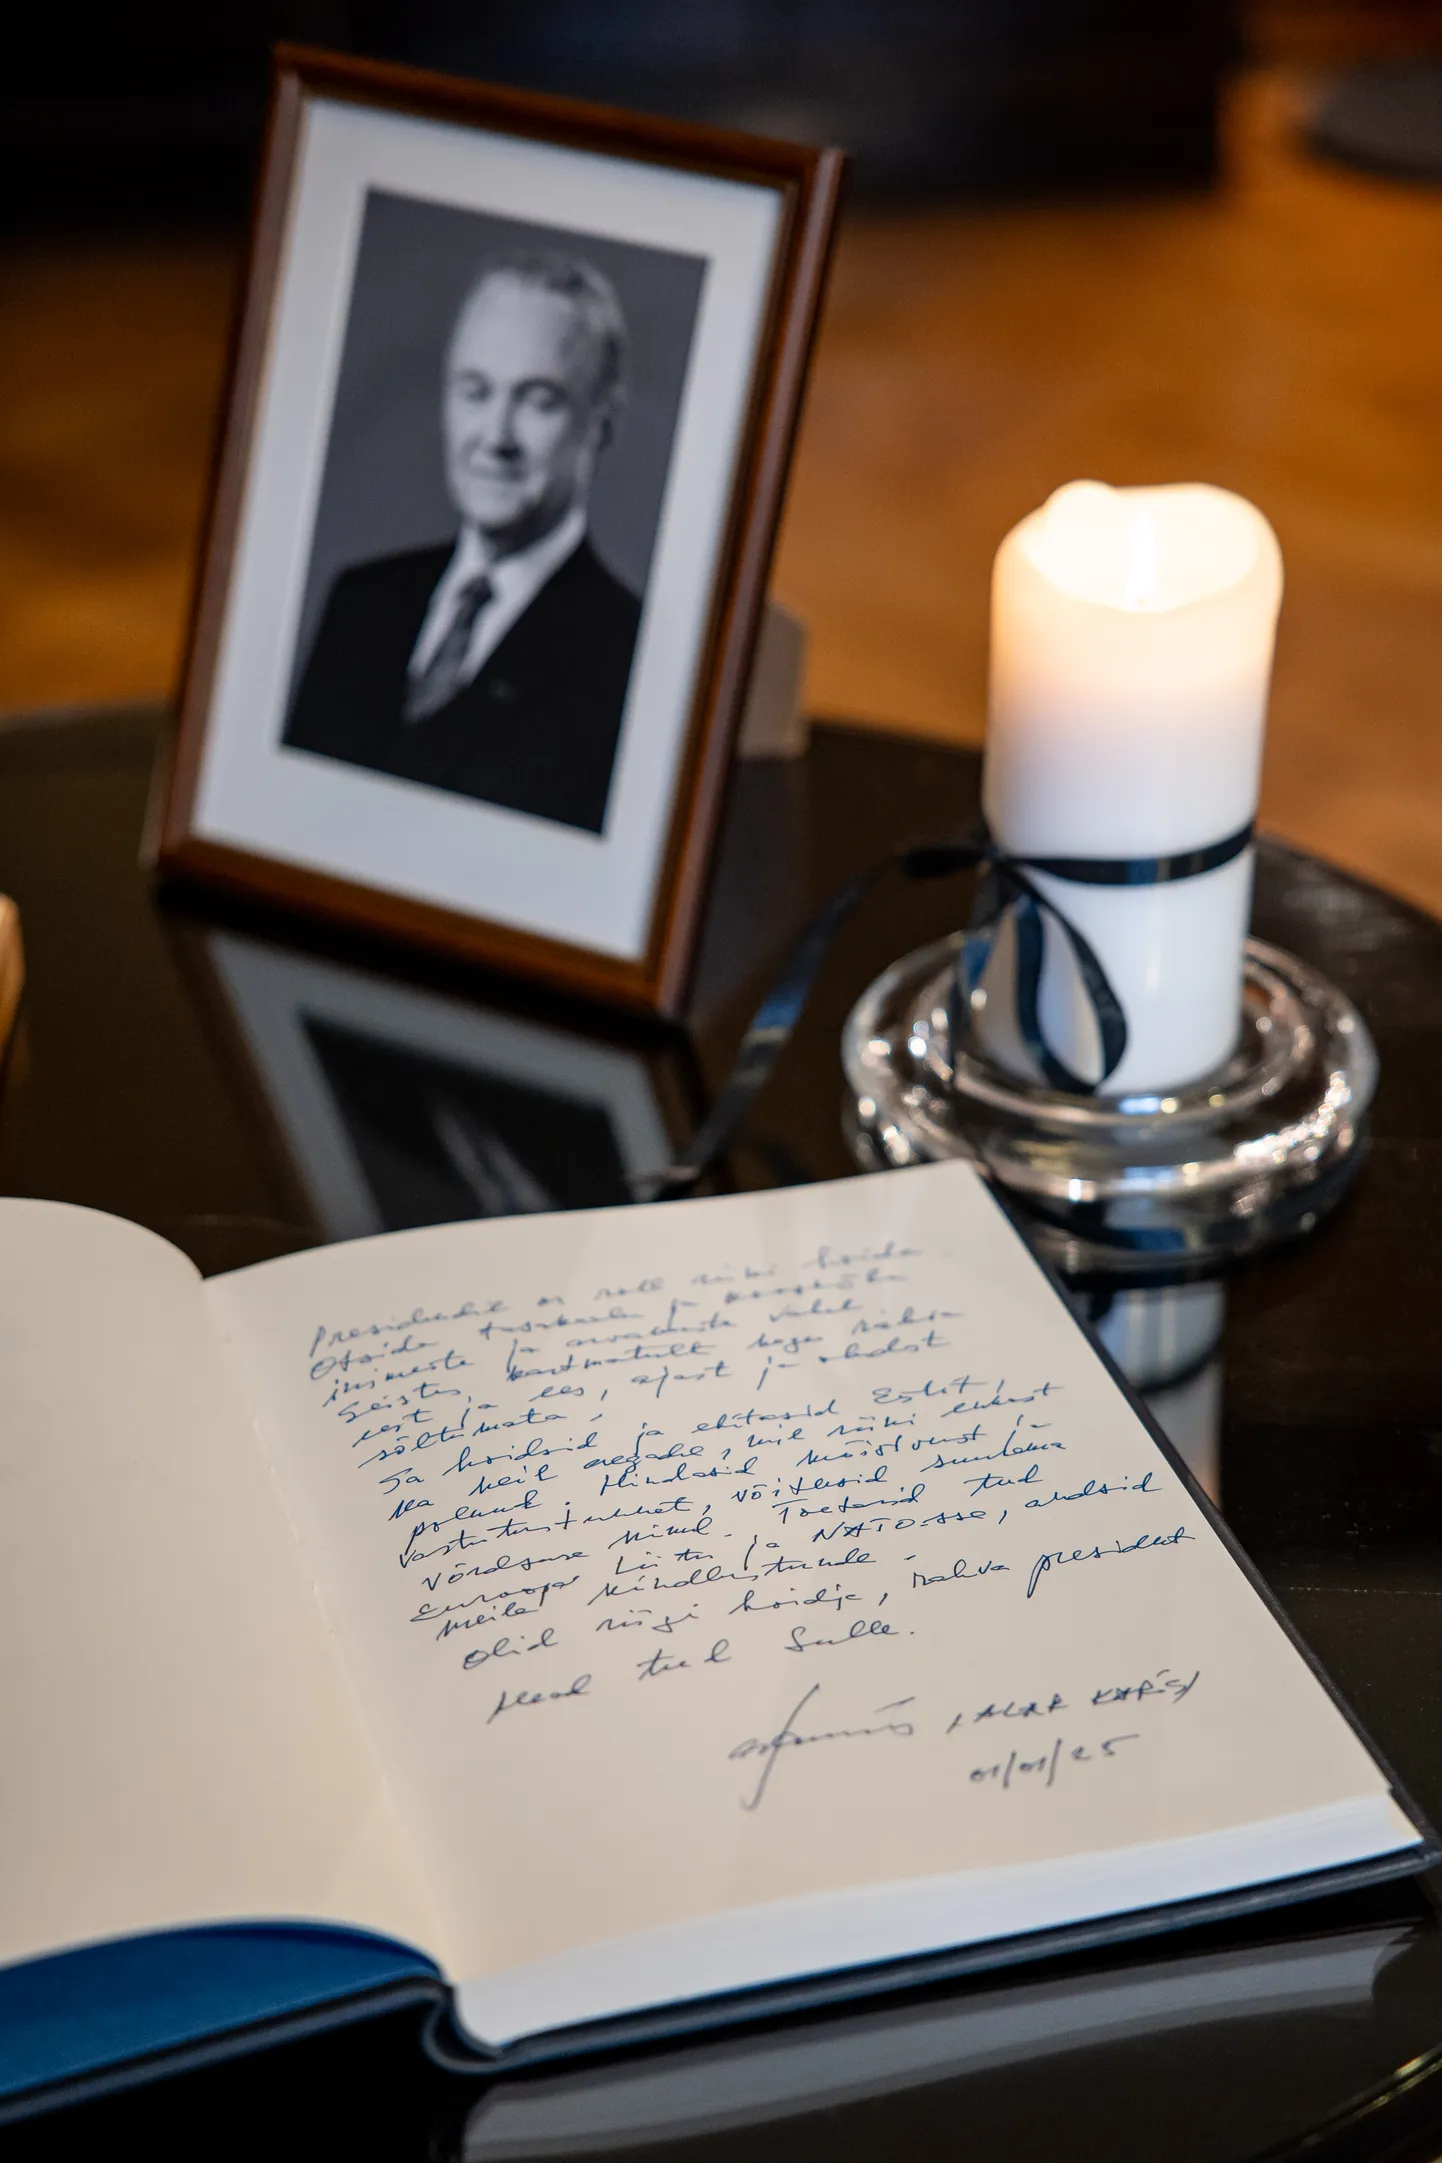 Presidendil on roll riiki hoida
Otsida tasakaalu ja kooskõla
inimeste ja arvamuste vahel
Seista, kartmatult kogu rahva
eest ja ees, ajast ja oludest
sõltumata.
Sa hoidsid ja ehitasid Eestit,
ka neil aegadel, mil riiki enust
polnud. Hindasid mõistvust ja
vastutustunnet, võitlesid suurlõma
võrdsuse nimel. Toetasid teed
Euroopa Liitu ja NATO-sse, andsid
meile kindlustunde.
Olid riigi hoidja, rahva president
Head teed Sulle.
, ALAR KARIS/
01/01/25